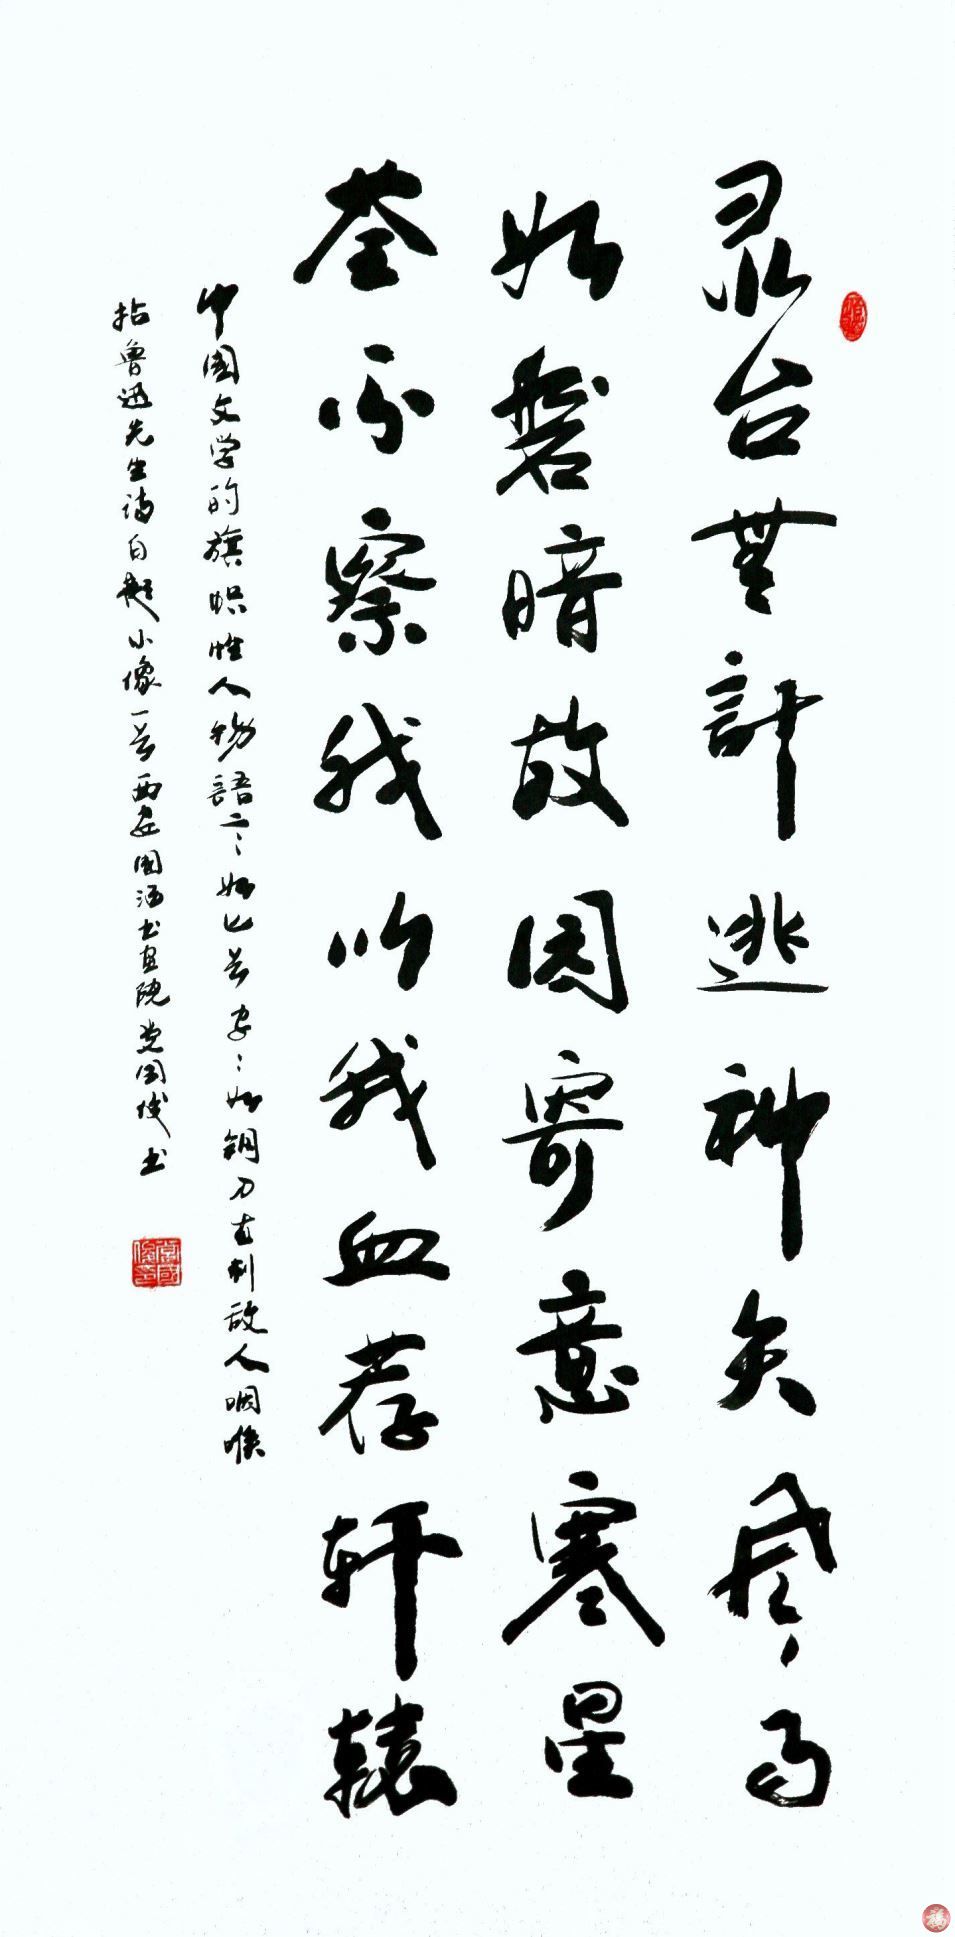 灵台無計逃神矢風雨
如磐暗故园寄意寒星
荃不察我以我血荐轩辕
中国文学的旗帜性人物語言〻如匕首字〻如钢刀直刺敌人咽喉
拈鲁迅先生诗自题小像一首西安国酒书画院党国俊书